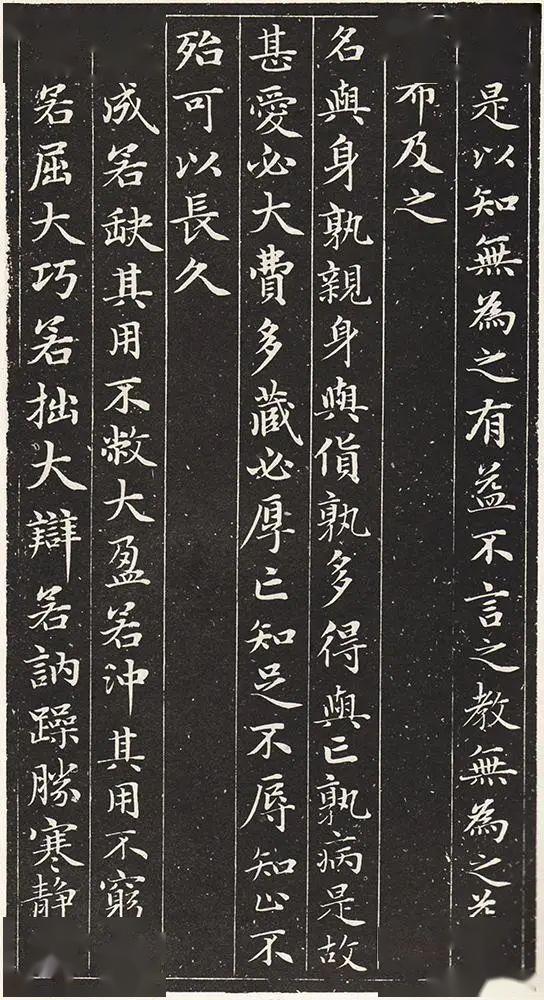 是以知無為之有益不言之教無為之益
希及之
名與身孰親身與貨孰多得與亡孰病是故
甚愛必大費多藏必厚亡知足不辱知止不
殆可以長久
成若缺其用不敝大盈若沖其用不窮
若屈大巧若拙大辯若訥躁勝寒靜